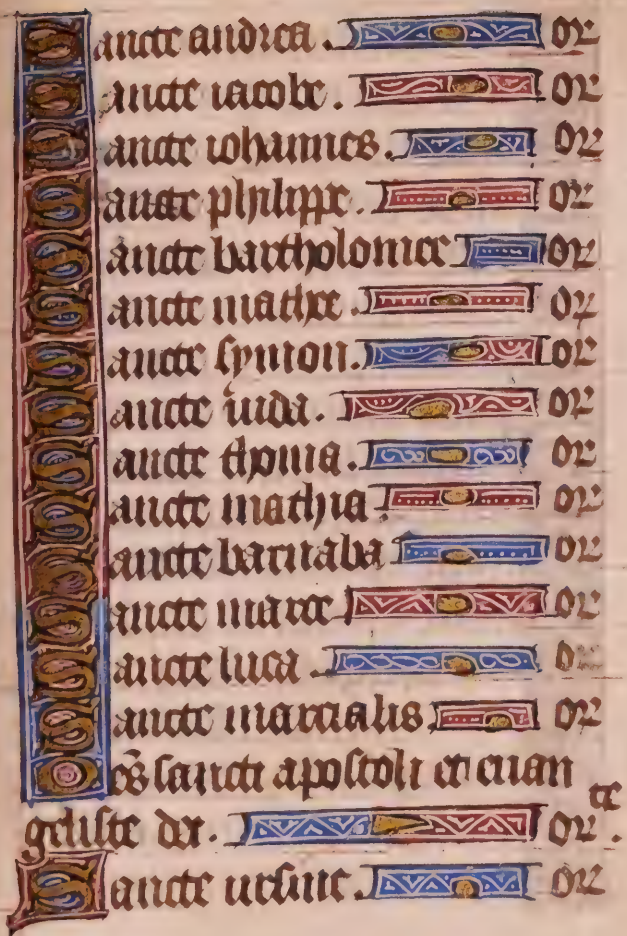 Sancte andrea. or
Sancte iacobe. or
Sancte iohannes. or
Sancte philippe. or
Sancte bartholomee or
Sancte mathee. or
Sancte symon. or
Sancte iuda. or
Sancte thoma. or
Sancte mathia. or
Sancte barnaba or
Sancte marce or
Sancte luca or
Sancte marcialis or
Oēs sancti apostoli et euan
geliste dei. orate.
Sancte ursine. or